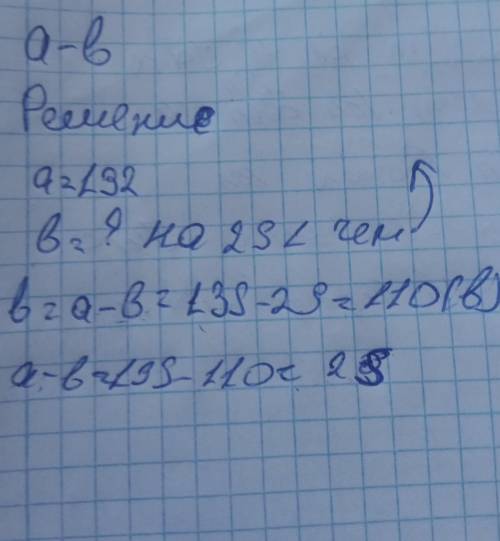 a-в
Решение
a=192
в=? на 29< чем
в=a-в=139-29=110(в)
a-в=139-110=29